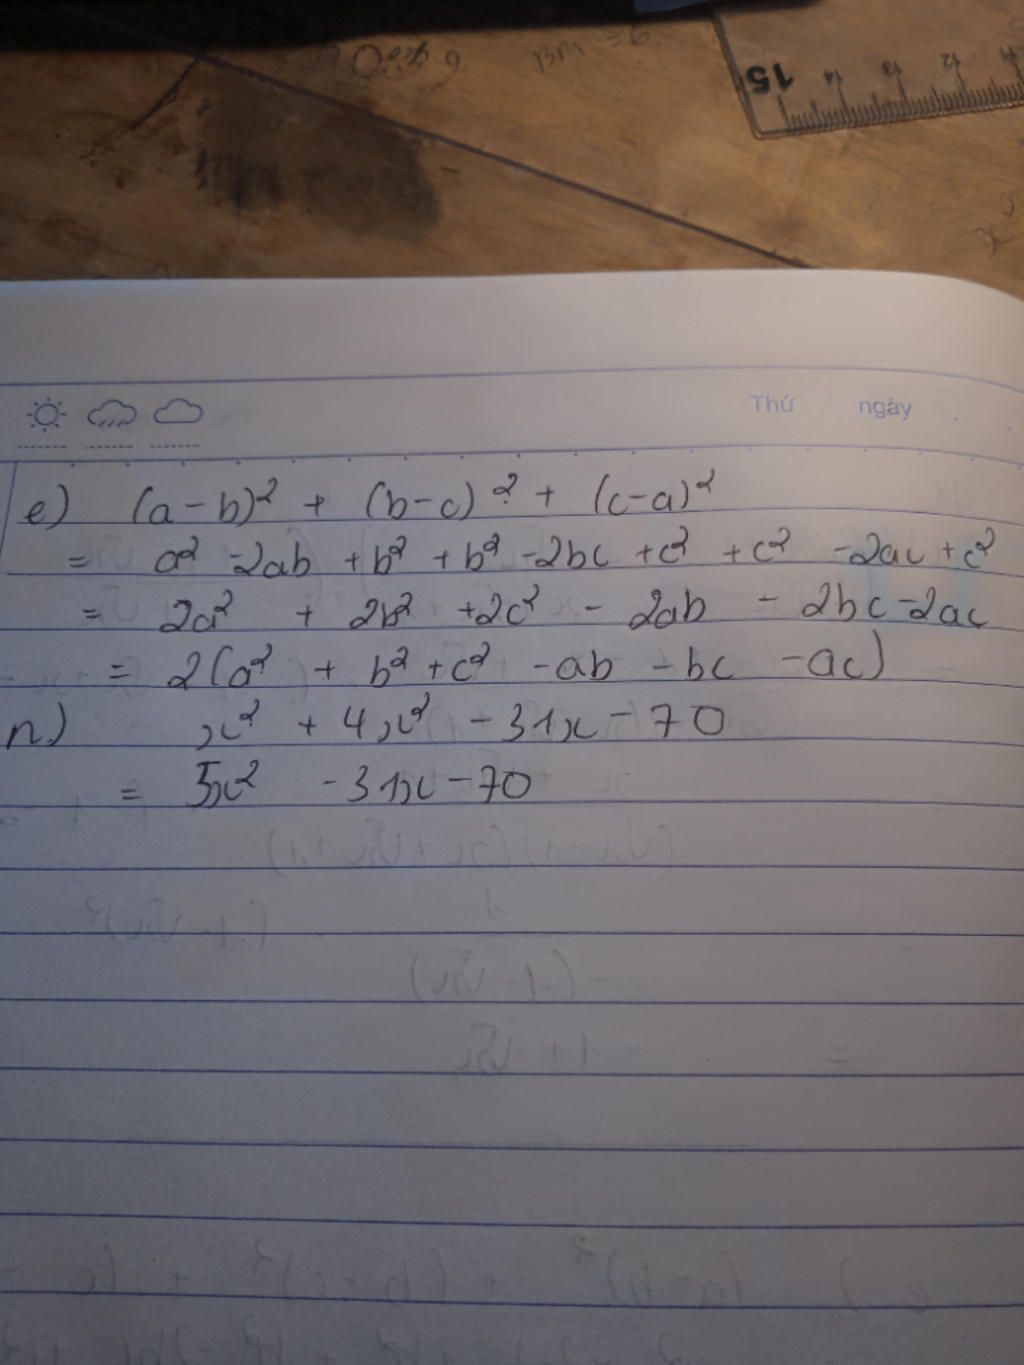 BM = 6
15 14 13 12 11
Thứ ngày
e) (a-b)² + (b-c)² + (c-a)²
= a² -2ab +b² +b² -2bc +c² +c² -2ac +c²
= 2a² + 2b² +2c² - 2ab - 2bc -2ac
= 2(a² + b² +c² -ab -bc -ac)
n) x² + 4x² - 31x - 70
= 5x² -31x -70